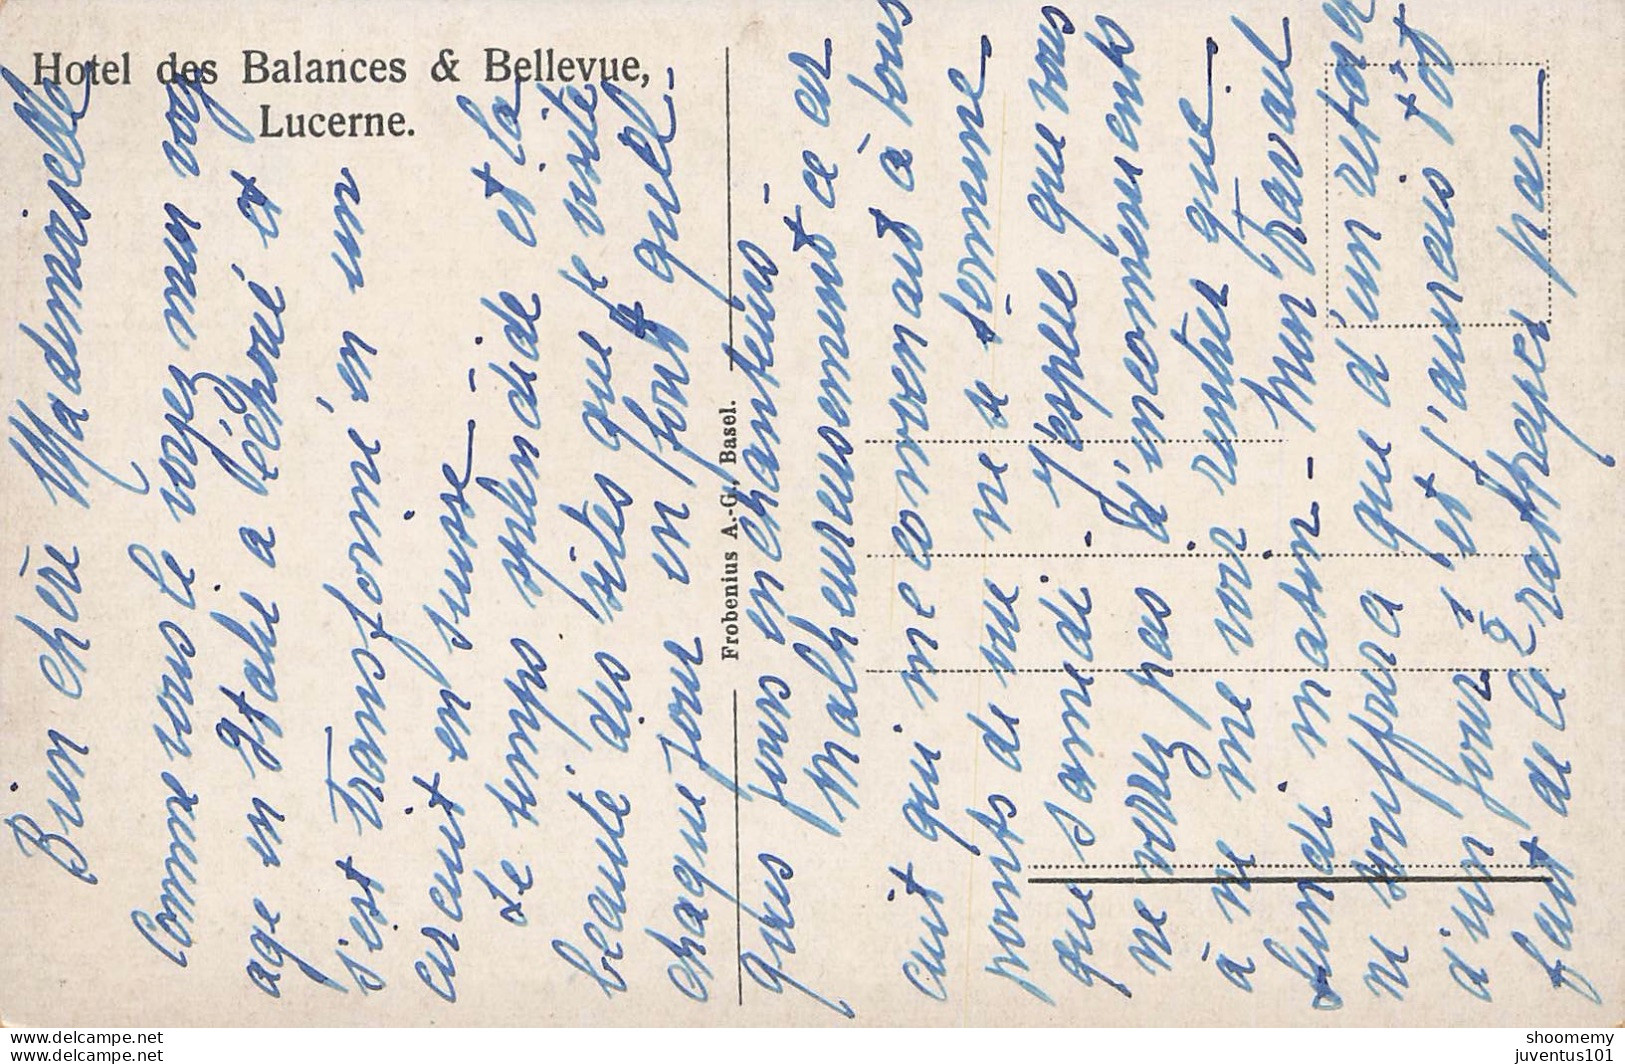 Hotel des Balances & Bellevue,
Lucerne.
Frobenius A.-G., Basel.
Bien chère Mademoiselle
Comme vous le voyez mon voy
age en Italie a échoué et
s'est transformé en un
circuit en Suisse -
Le temps splendide et la
beauté des sites que je visite
chaque jour en font quel-
ques jours enchanteurs -
Malheureusement ce cir
cuit qui me convenait à tous
points de vue ne se termine
que samedi - J'espère que vous
ne voyez pas d'inconvénients
à ne me voir rentrer que
lundi matin - Mon travail
ne souffrira que d'un retard
d'un jour et j'aurais tôt
fait de le rattraper par
shoomemy
juventus101